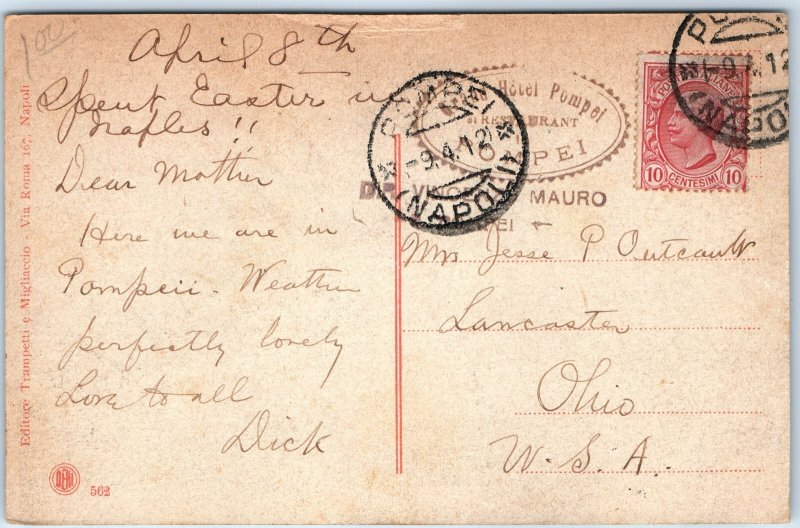 100
April 8th
Spent Easter in
Naples !!
Dear Mother
Here we are in
Pompeii - Weather
perfectly lovely
Love to all
Dick
Mrs Jesse P Outcault
Lancaster
Ohio
U. S. A.
Hôtel Pompei
RESTAURANT
POMPEI
* POMPEI *
-9.4.12
(NAPOLI)
MAURO
10 CENTESIMI 10
-9.4.12
(NAPOLI)
Editore Trampetti e Migliaccio - Via Roma 167, Napoli
562